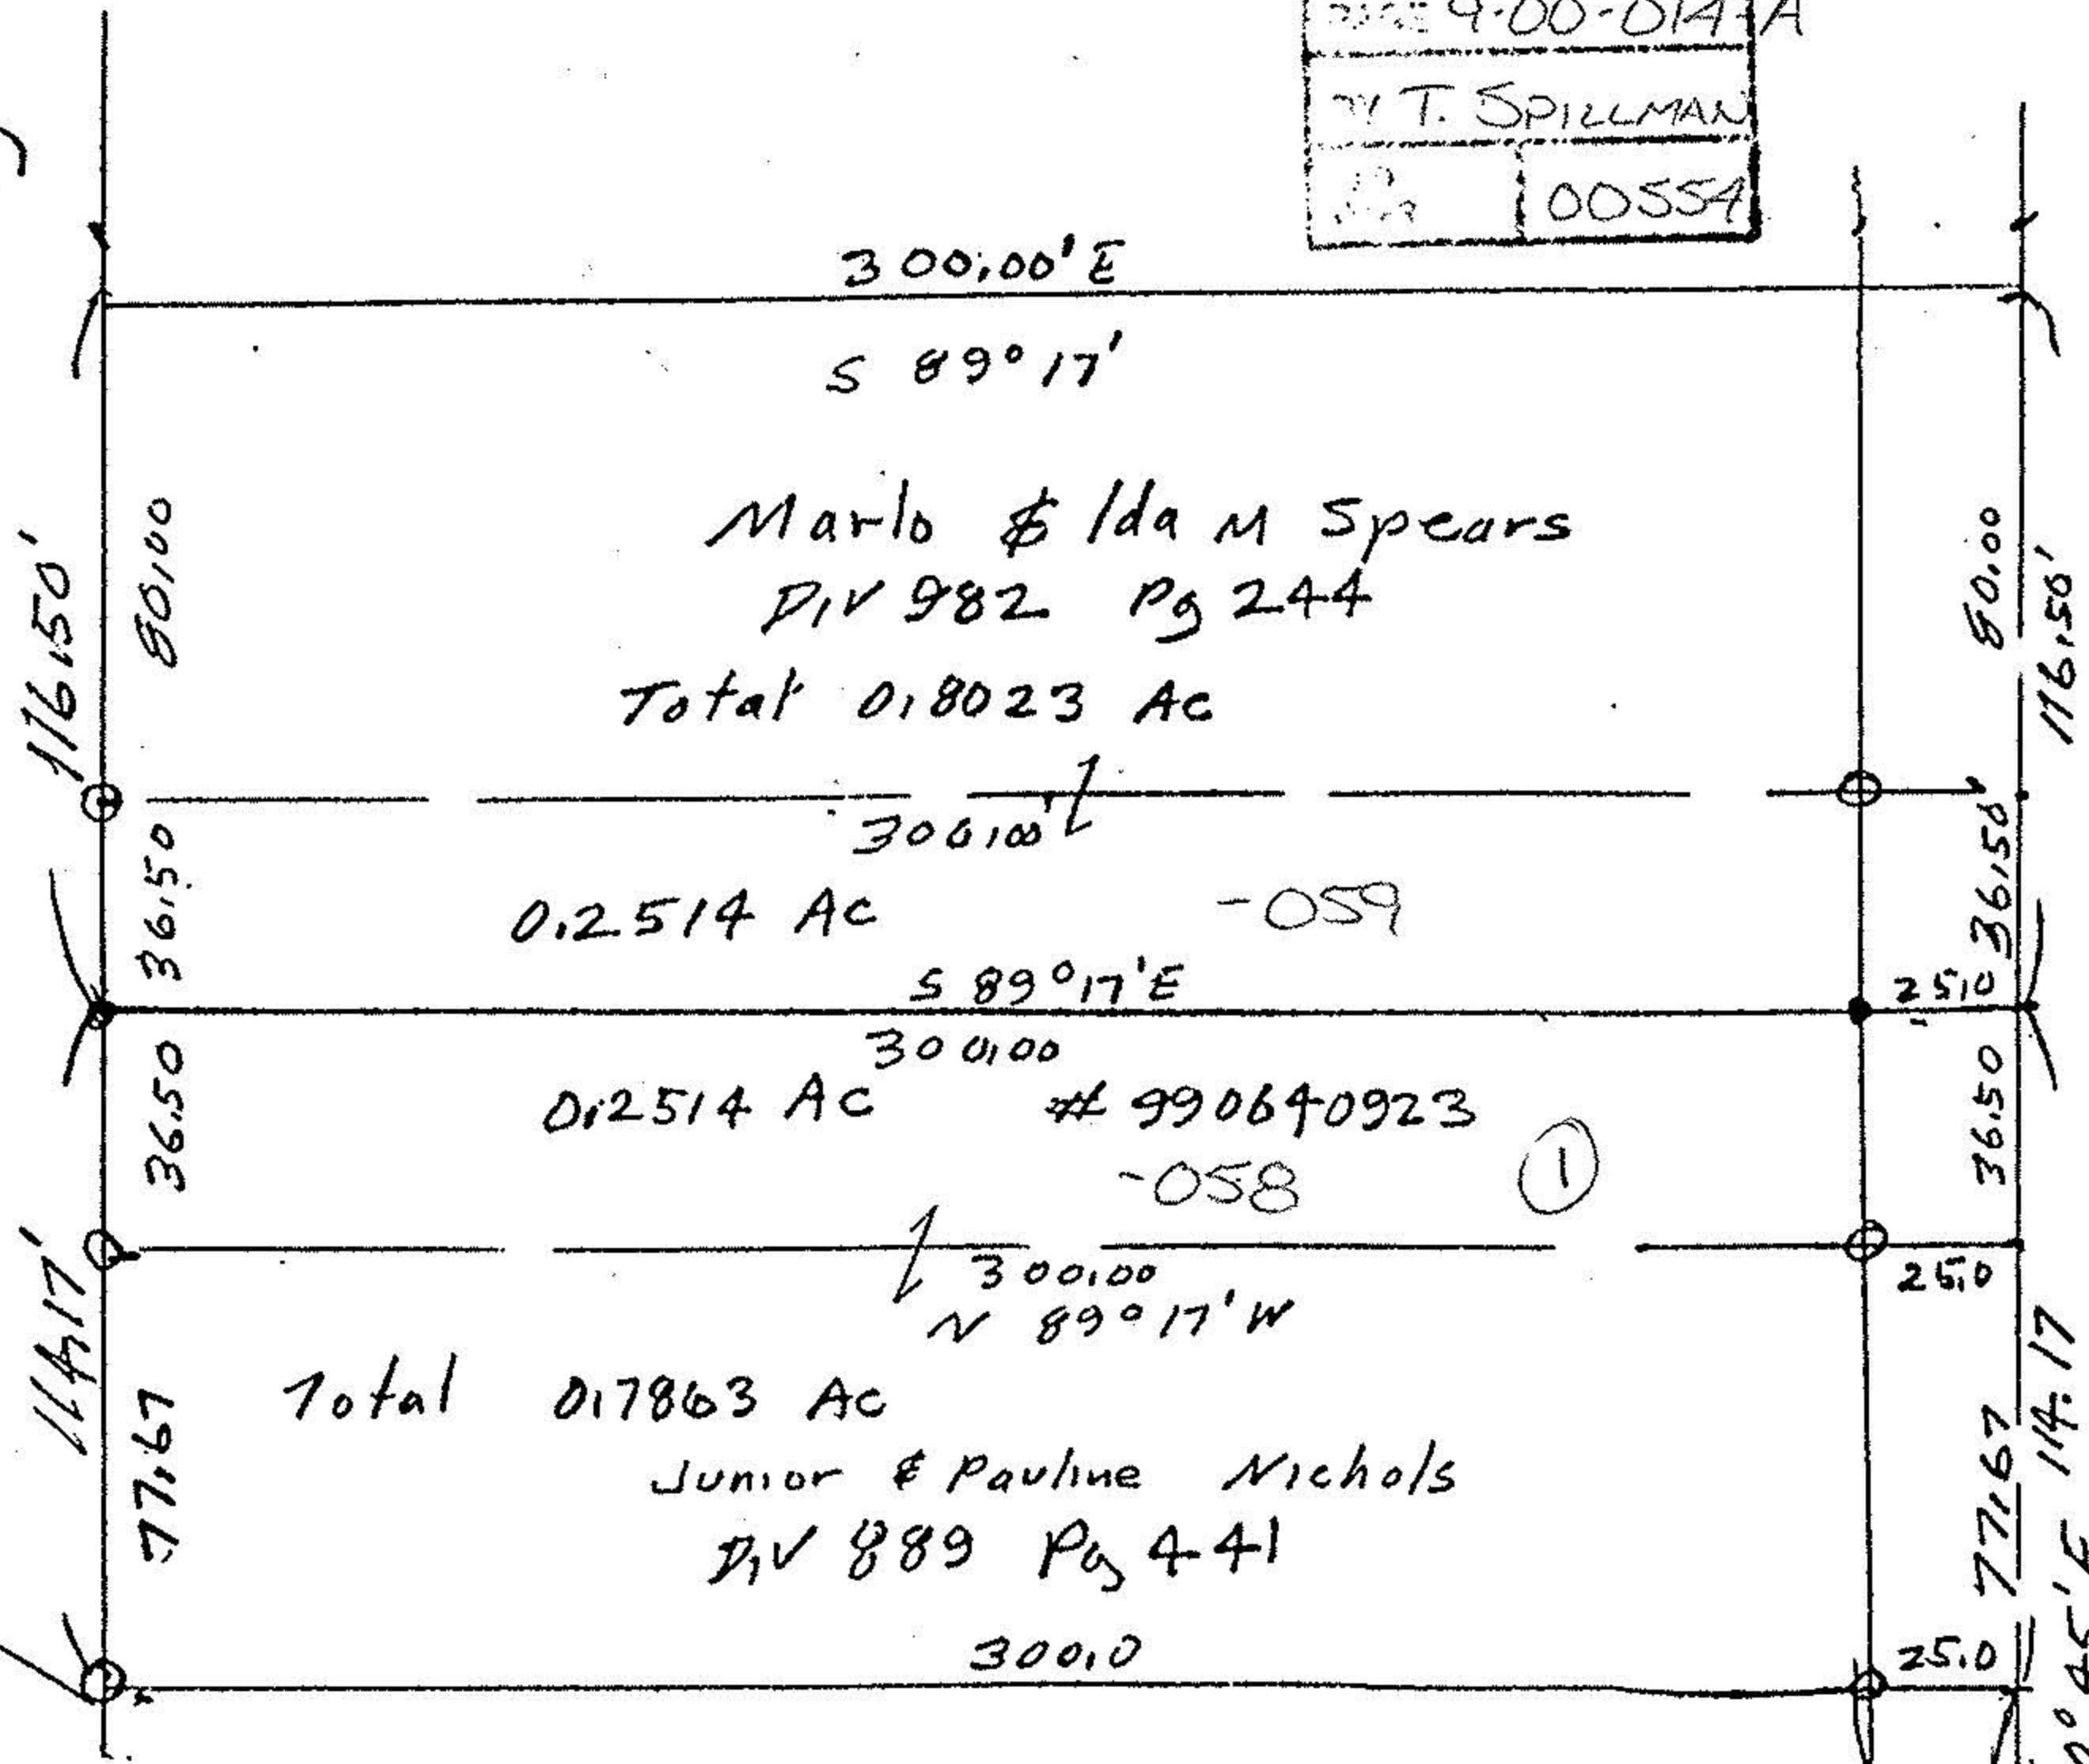 9-00-014-A
T. SPILLMAN
00554
300.00' E
S 89° 17'
116.50'
80.00
Marlo & Ida M Spears
D.V 982 Pg 244
Total 0.8023 Ac
80.00
116.50'
300.00'
36.50
0.2514 Ac -059
36.50
S 89° 17' E
25.0
300.00
36.50
0.2514 Ac # 990640923
-058 1
36.50
300.00
25.0
N 89° 17' W
114.17'
77.67
Total 0.7863 Ac
Junior & Pauline Nichols
D.V 889 Pg 441
77.67
45' E 114.17
300.0
25.0